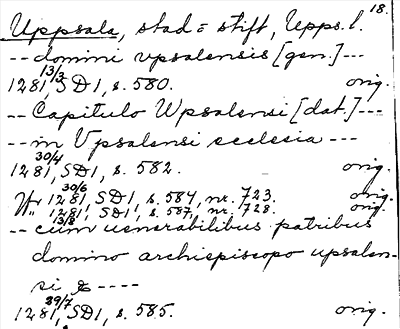 18.
Uppsala, stad = stift, Upps. l.
-- domini upsalensis [gen.] ---
1281 13/3, SD 1, s. 580. orig.
-- Capitulo Wpsalensi [dat.] ---
-- in Vpsalensi ecclesia ---
1281 30/4, SD 1, s. 582. orig.
1281 30/6, SD 1, s. 584, nr. 723. orig.
" 1281 13/8, SD 1, s. 587, nr. 728. orig.
-- cum uenerabilibus patribus
domino archiepiscopo upsalen-
si &----
1281 29/7, SD 1, s. 585. orig.